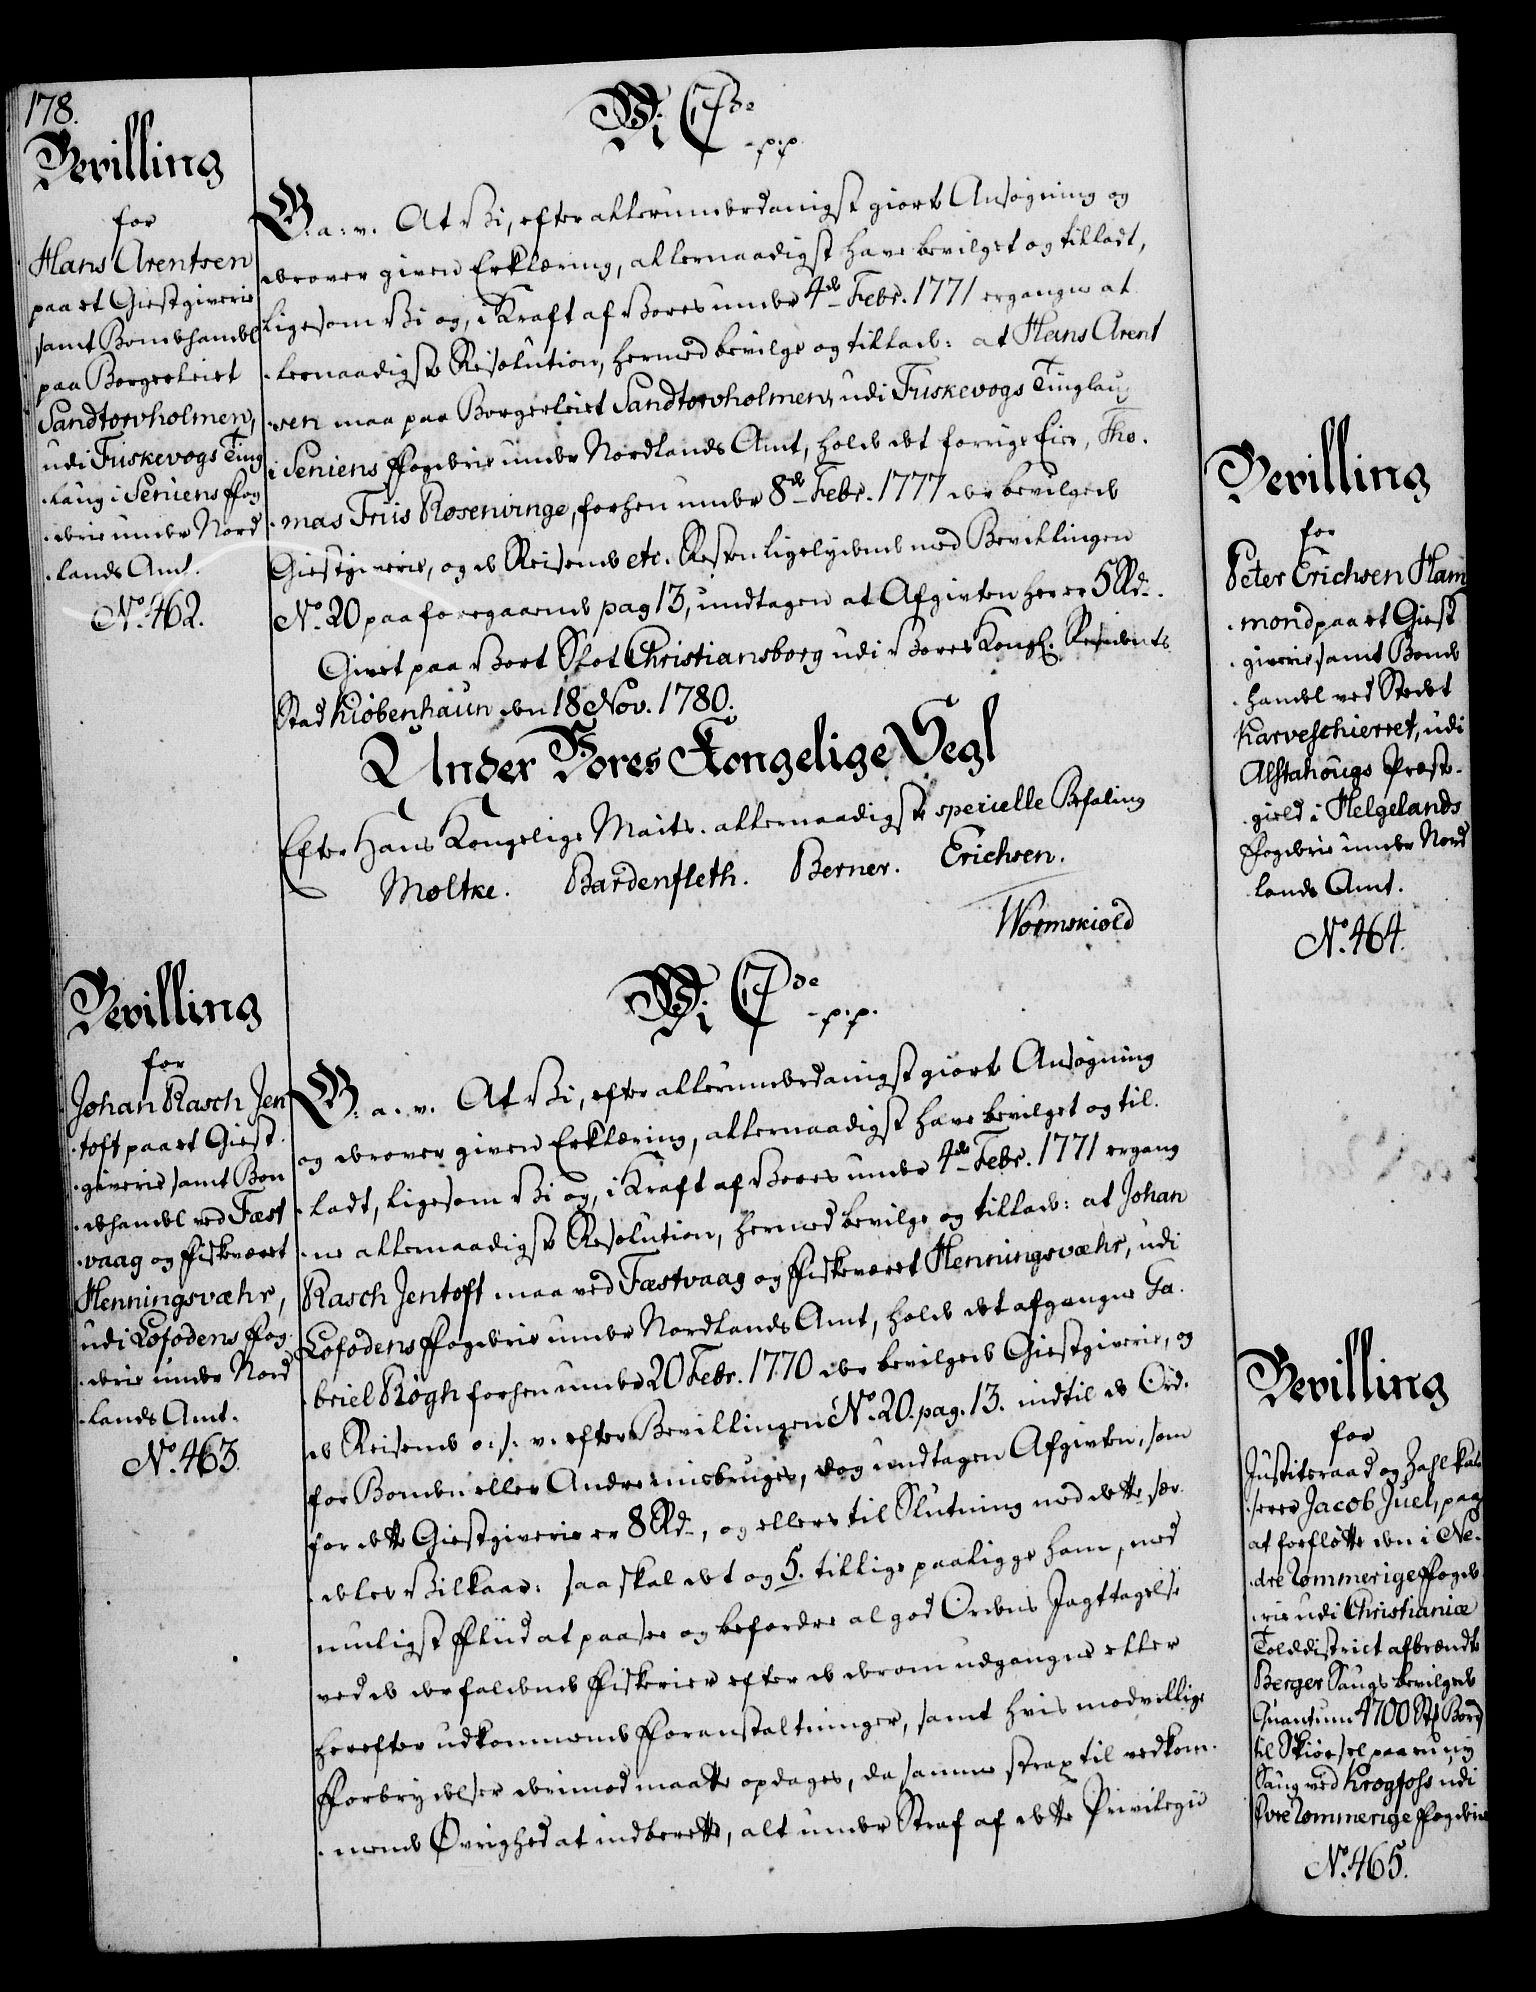 178.
Bevilling
for
Hans Arentsen
paa et Giestgiverie
samt Bondehandel
paa Borgerleiet
Sandtorvholmen,
udi Fuskevogs Ting
-laug i Seniens Fog
-derie under Nord
-lands Amt.
No. 462.
Vi C 7de
-p.p.
G. a: v. At Vi, efter allerunderdanigst giorte Ansøgning og
derover given Erklæring, allernaadigst have bevilget og tilladt,
ligesom Vi og, i Kraft af Vores under 4de Febr. 1771 ergangne al
-lernaadigste Resolution, hermed bevilge og tillade: at Hans Arent
-sen maa paa Borgerleiet Sandtorvholmen, udi Fuskevogs Tinglaug
i Seniens Fogderie under Nordlands Amt, holde det forrige Eier, Tho-
-mas Friis Rosenvinge, forhen under 8de Febr. 1777 der bevilgede
Giestgiverie, og de Reisende etc. Resten ligelydende med Bevillingen
No. 20 paa foregaaende pag 13, undtagen at Afgivten her er 5 Rd.
Givet paa Vort Slot Christiansborg udi Vores Kongl. Residents
Stad Kiøbenhaün den 18 Nov. 1780.
Under Vores Kongelige Segl
Efter Hans Kongelige Maits. allernaadigste specielle Befaling
Moltke. Bardenfleth. Berner. Erichsen.
Wormskiold
Bevilling
for
Johan Rasch Jen
-toft paa et Giest-
-giverie samt Bon
-dehandel ved Fæst
-vaag og Fiskeværet
Henningsvæhr,
udi Lofodens Fog-
-derie under Nord
-lands Amt.
No. 463.
Vi C 7de
-p.p.
G. a. v. At Vi, efter allerunderdanigst giorte Ansøgning
og derover given Erklæring, allernaadigst have bevilget og til-
-ladt, ligesom Vi og, i Kraft af Vores under 4de Febr. 1771 ergang
-ne allernaadigste Resolution, hermed bevilge og tillade: at Johan
Rasch Jentoft maa ved Fæstvaag og Fiskeværet Henningsvæhr, udi
Lofodens Fogderie under Nordlands Amt, holde det afgangne Ga-
-briel Røgh forhen under 20 Febr. 1770 der bevilgede Giestgiverie, og
de Reisende o: s: v. efter Bevillingen No. 20. pag. 13. indtil de Ord:
for Bonden eller Andre misbruges, dog undtagen Afgivten, som
for dette Giestgiverie er 8 Rd., og ellers til Slutning med dette sær-
-deles Vilkaar: saa skal det og 5. tillige paaligge ham, med
muligst Fliid at paasee og befordre al god Ordens Jagttagelse
ved de derfaldende Fiskerier efter de derom udgangne eller
herefter udkommende Foranstaltninger, samt hvis modvillige
Forbrydelser derimod maatte opdages, da samme strax til vedkom-
-mende Øvrighed at indberette, alt under Straf af dette Privilegii
Bevilling
for
Peter Erichsen Ham
-mond paa et Giest
-giverie samt Bonde
-handel ved Stedet
Karveschierret, udi
Alstahougs Præste-
-gield i Helgelands
Fogderie under Nord
-lands Amt.
No. 464.
Bevilling
for
Justitsraad og Zahlkas
-serer Jacob Juel, paa
at forflötte den i Ne-
-dre Rommerige Fogde
-rie udi Christianiæ
Tolddistrict afbrændte
Berger Saugs bevilgede
Quantum 4700 Stk Bord
til Skiørsel paa en ny
Saug ved Krogfoss udi
Øvre Rommerige Fogderie
No. 465.